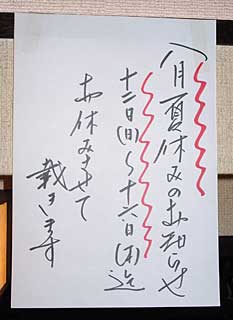 八月夏休みのお知らせ
十二日(日)〜十六日(木)迄
お休みさせて
載きます